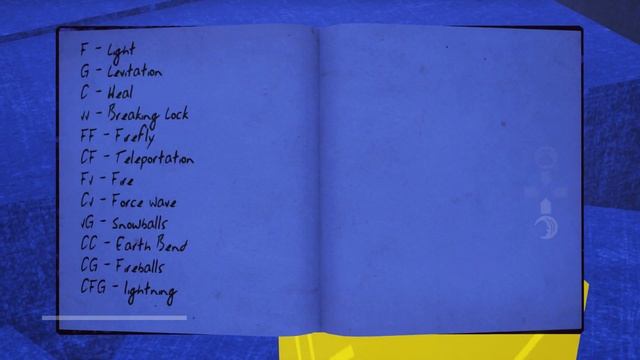 F - Light
G - Levitation
C - Heal
vv - Breaking Lock
FF - Firefly
CF - Teleportation
Fv - Fire
Cv - Force wave
vG - Snowballs
CC - Earth Bend
CG - Fireballs
CFG - lightning